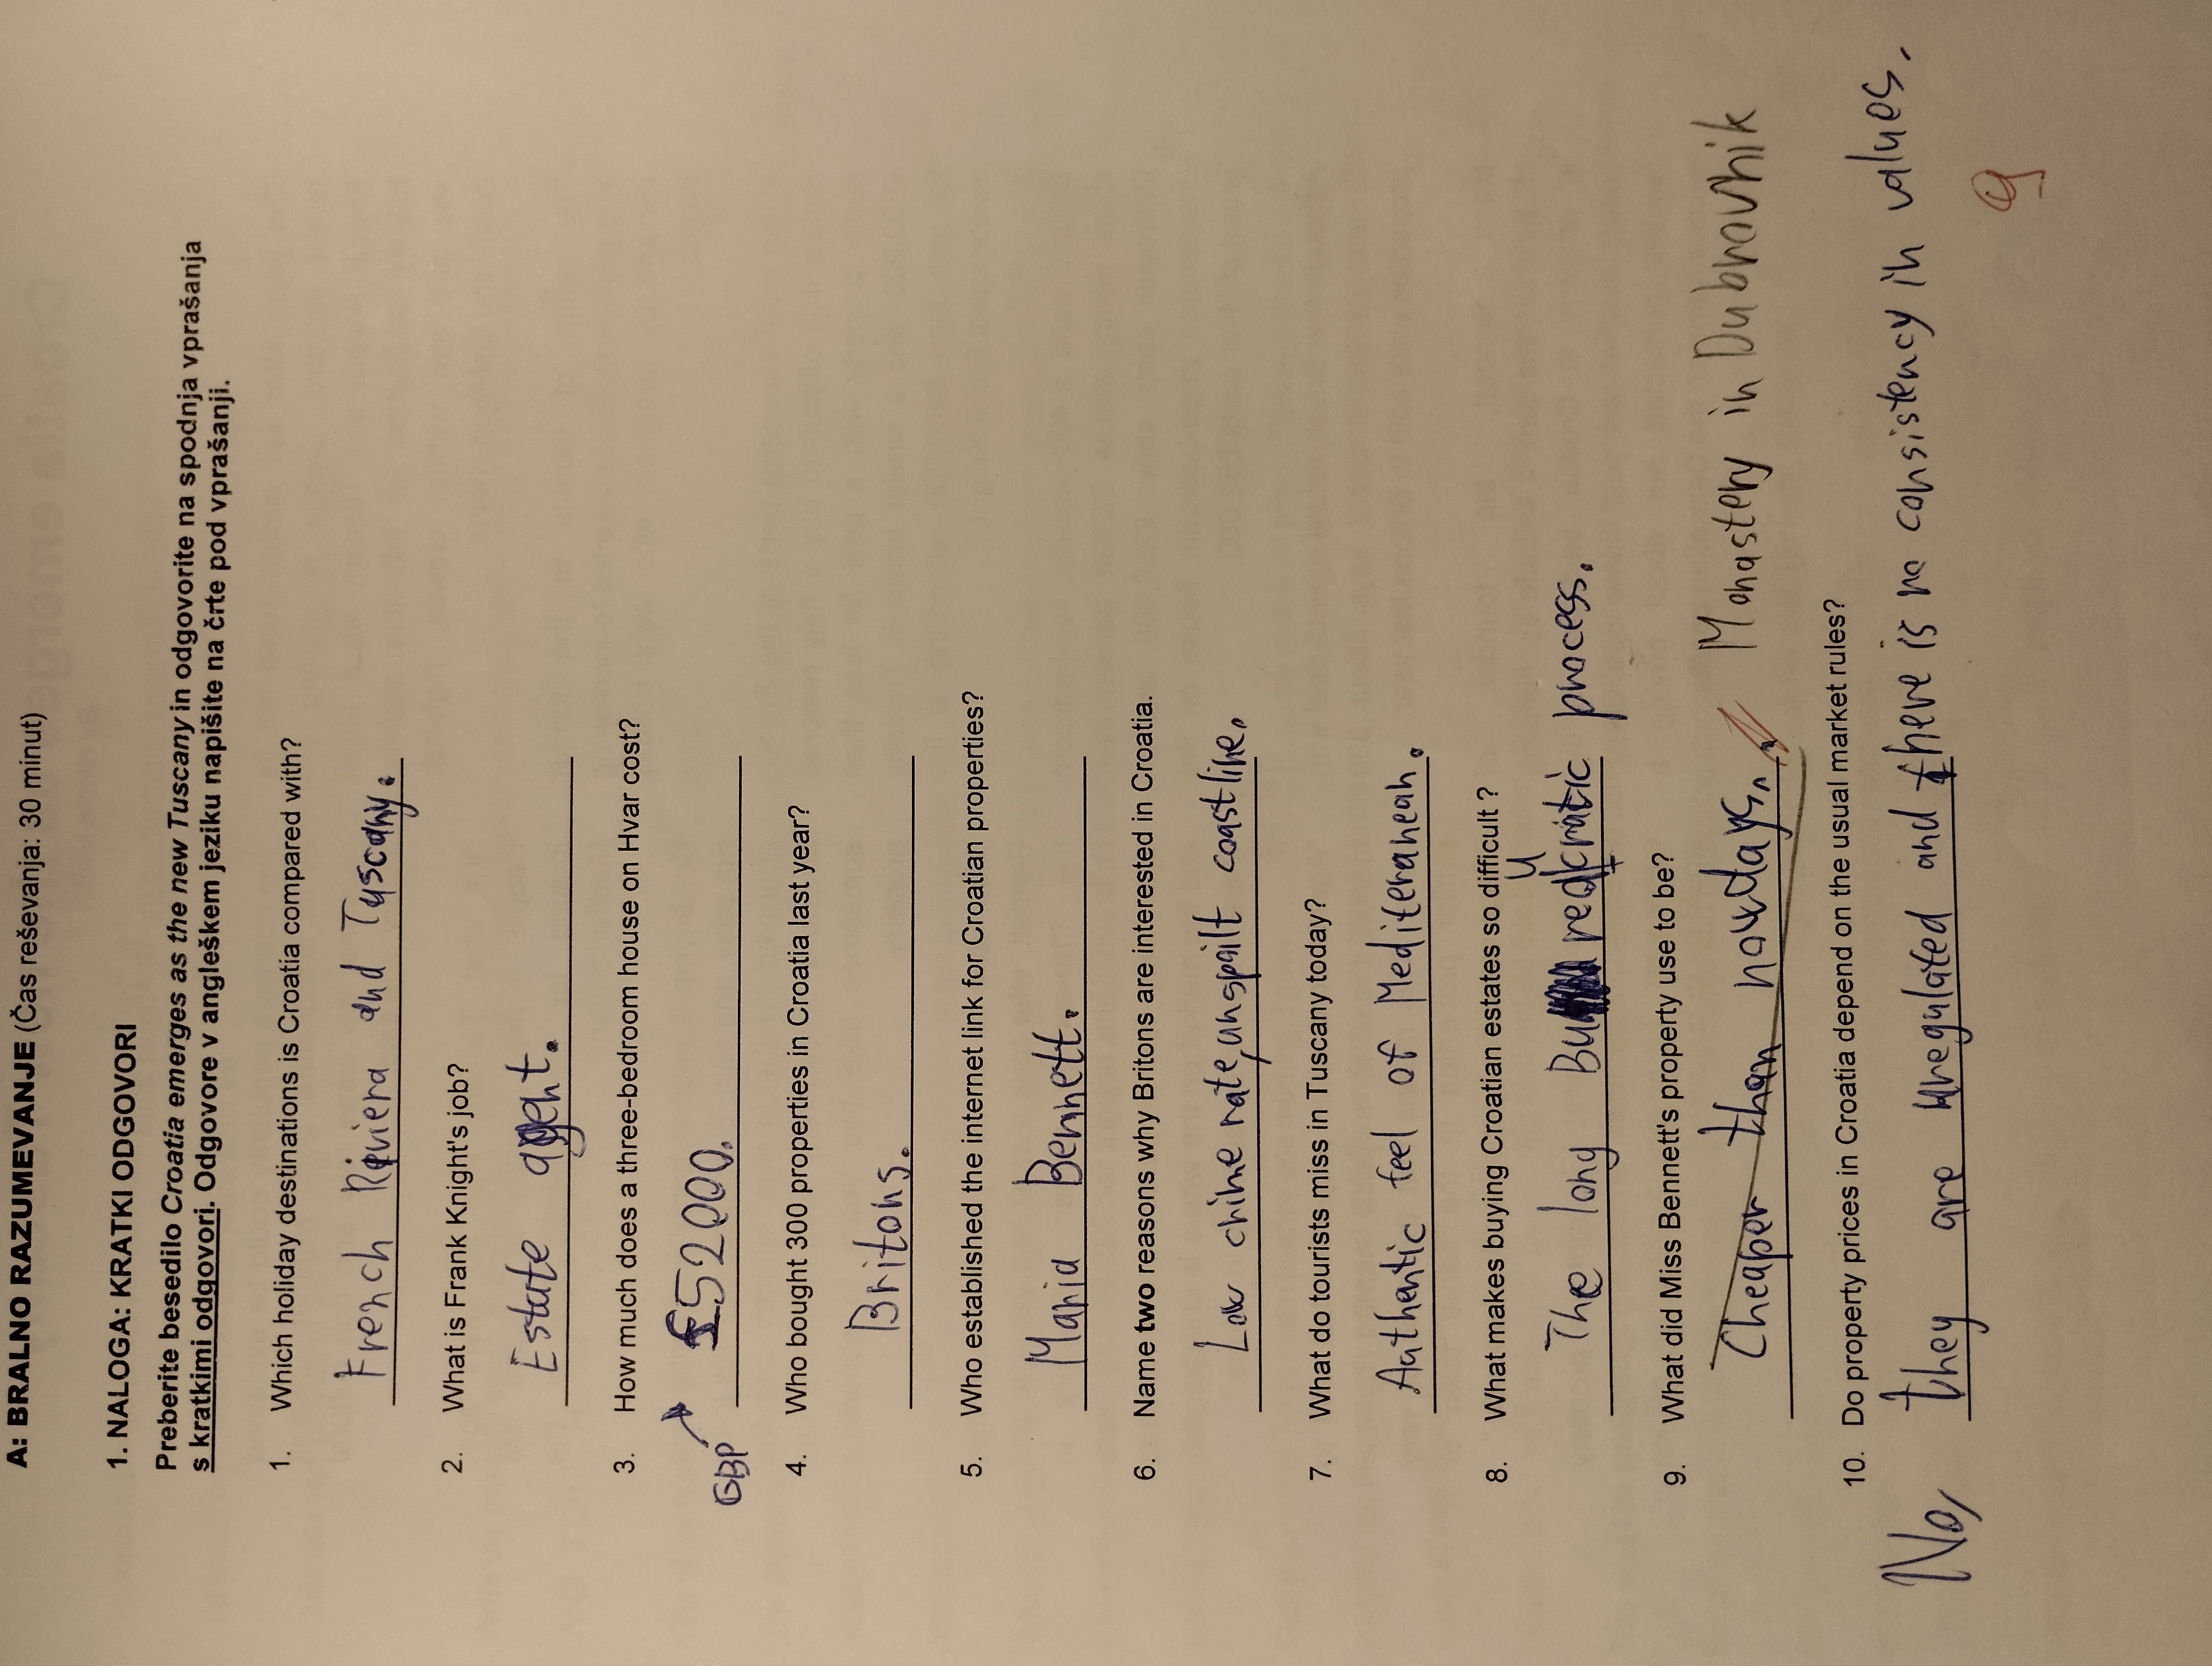 A: BRALNO RAZUMEVANJE (Čas reševanja: 30 minut)
1. NALOGA: KRATKI ODGOVORI
Preberite besedilo Croatia emerges as the new Tuscany in odgovorite na spodnja vprašanja
s kratkimi odgovori. Odgovore v angleškem jeziku napišite na črte pod vprašanji.
1. Which holiday destinations is Croatia compared with?
French Riviera and Tuscany.
2. What is Frank Knight's job?
Estate agent.
3. How much does a three-bedroom house on Hvar cost?
GBP £52000.
4. Who bought 300 properties in Croatia last year?
Britons.
5. Who established the internet link for Croatian properties?
Maria Bennett.
6. Name two reasons why Britons are interested in Croatia.
Low crime rate, unspoilt coastline.
7. What do tourists miss in Tuscany today?
Authentic feel of Mediteranean.
8. What makes buying Croatian estates so difficult ?
The long Bureaucratic process.
9. What did Miss Bennett's property use to be?
Cheaper than nowdays. Monastery in Dubrovnik
10. Do property prices in Croatia depend on the usual market rules?
No, they are unregulated and there is no consistency in values.
9